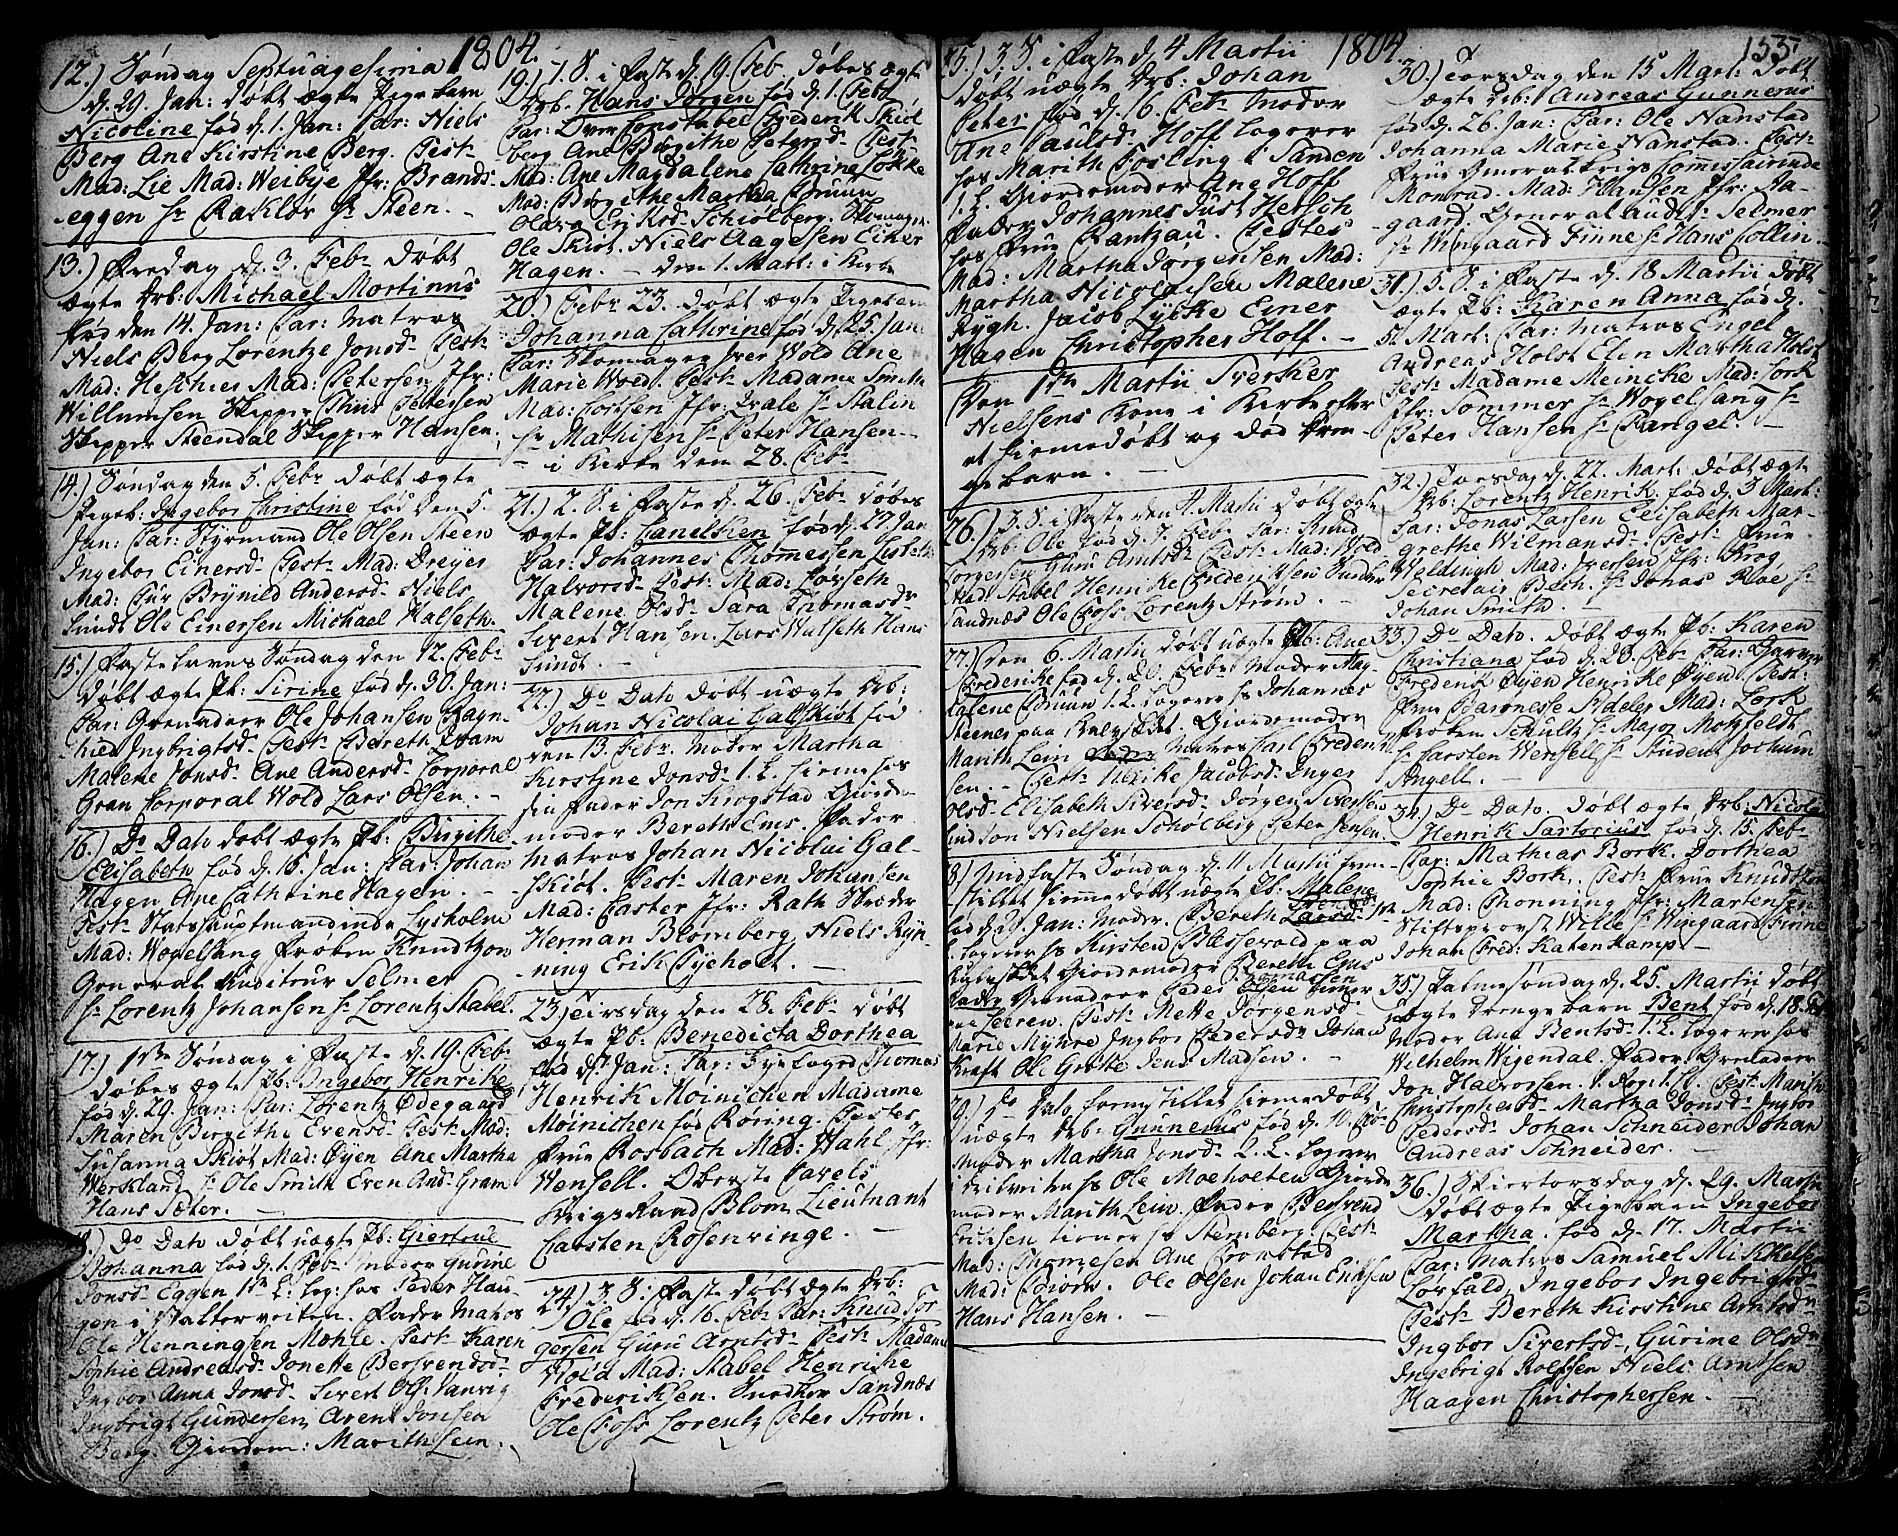 1804.
12.) Søndag Septuagesima
d. 29. Jan: døbt ægte Pigebarn
Nicoline fød d. 1. Jan: Par: Niels
Berg Ane Kirstine Berg. Test:
Mad: Lie Mad: Weibye Jfr: Brands-
eggen Hr Raklør Hr Steen.
13.) Fredag d. 3. Febr døbt
ægte Drb: Michael Mortinus
fød den 14. Jan: Par: Matros
Niels Berg Lorentze Jonsd. Test:
Mad: Mad: Petersen Jfr:
Willumsen Skipper Thiis Petersen
Skipper Steendal Skipper Hansen.
14.) Søndag den 5. Febr døbt ægte
Pigeb: Ingebor Christine fød den 5.
Jan: Par: Styrmand Ole Olsen Steen
Ingebor Einersd. Test: Mad: Dreyer
Mad: Brynild Andersd. Niels
Sundt Ole Einersen Michael Halseth.
15.) Fastelavns Søndag den 12. Febr
døbt ægte Pb: Sirine fød d. 30. Jan:
Par: Grenadeer Ole Johansen Ragn-
hild Ingbrigtsd. Test: Bereth
Malene Jonsd. Ane Andersd. Corporal
Gran Corporal Wold Lars Olsen.
16.) Do Dato døbt ægte Pb: Birgithe
Elisabeth fød d. 16. Jan: Par: Johan
Hagen Ane Cathrine Hagen.
Test: Lysholm
Mad: Vogelsang Frøken Knudtzon
General Auditeur Selmer
Hr Lorentz Johansen Hr Lorentz Stabel.
17.) 1ste Søndag i Faste d. 19. Febr
døbes ægte Pb: Ingebor Henrikke
fød d. 29. Jan: Par: Lorentz Ødegaard
Maren Birgithe Evensd. Test: Mad:
Susanna Skiøt Mad: Øyen Ane Martha
Werkland Hr Ole Smith Even And: Gram
Hans Sæter.
18.) Do Dato døbt uægte Pb: Giertrue
Johanna fød d. 1. Febr Moder Gurine
Jonsd. Eggen 1ste L: log: hos Peder Hau-
gen i Fader Matros
Ole Henningsen Møhle. Test: Karen
Sophie Andreasd. Jonette Bersvendsd.
Ingbor Anna Jonsd. Sivert
Ingbrigt Gundersen Arent Jonsen
Berg. Giordem: Marith Lein.
19.) 1. S. i Faste d. 19. Feb. døbes ægte
Drb. Hans Jørgen fød d. 1. Febr
Par: Over Constabel Frederik Skiøl-
berg Ane Birgithe Petersd. Test:
Mad: Ane Magdalene Cathrine Løkke
Mad: Birgithe Martha Bruun
Olava Eriksd. Schiølberg. Skomager
Ole Skiøt. Niels Aagesen Einer
Hagen. – den 1. Mart: i Kirke
20.) Febr 23. døbt ægte Pigebarn
Johanna Cathrine fød d. 25. Jan:
Par: Skomager Iver Wold Ane
Marie Wold. Test: Madame Smith
Mad: Jfr: Hr Stalin
Hr Mathisen Hr Peter Hansen.
i Kirke den 28. Febr
21.) 2. S. i Faste d. 26. Febr døbes
ægte Pb: Canelken fød d. 27. Jan
Par: Johannes Thomessen Lisbeth
Halvorsd. Test: Mad: Forseth
Malene Olsd. Sara Thomasdr
Sivert Hansen. Lars Walseth Hans
Sundt.
22.) Do Dato døbt uægte Drb:
Johan Nicolai Galtskiøt fød
den 13. Febr. Moder Martha
Kirstine Jonsd. 1. L. hiemme hos
sin Fader Jon Krogstad Giorde-
moder Bereth Ems. Fader
Matros Johan Nicolai Gal-
skiøt. Test: Maren Johansen
Mad: Caster Jfr: Rath Skræder
Herman Blomberg. Niels Ryn-
ning Erik Byeholt.
23.) Tirsdag den 28. Febr døbt
ægte Pb: Benedicta Dorthea
fød d. 7. Jan: Par: Byefoged Thomas
Henrik Møinichen Madame
Møinichen fød Røring. Testes
Frue Rosbach Mad: Wahl Jfr:
Wensell. Oberste Parels
Krigsraad Blom Lieutnant
Carsten Rosenvinge.
24.) 3. S. i Faste døbt ægte Drb:
Ole fød d. 16. Febr Par: Knud Tor-
gersen Guru Arntsd. Test: Madame
Wold Mad: Stabel Henrikke
Frederiksen. Snedker Sandnæs
Ole Foss Lorentz Peter Strøm.
1804.
25.) 3. S. i Faste d. 4 Martii
døbt uægte Drb: Johan
Peter fød d. 16. Febr Moder
Ane Paulsd. Hoff logerer
hos Marith Fosling i Sanden
1. L. Giordemoder Ane Hoff
Fader Johannes Just Hersch
hos Frue Rantzau. Testes
Mad: Martha Jørgensen Mad:
Martha Nicolaisen Malene
Rygh. Jacob Lykke Einer
Hagen Christopher Hoff.
Den 1ste Martii Sverker
Nielsens Kone i Kirke efter
et hiemedøbt og død Dren-
gebarn.
26.) 3. S. i Faste den 4 Martii døbt ægte
Drb. Ole fød d. 7. Feb Par: Knud
Torgersen Guru Arntsd. Test: Mad: Wold
Mad: Stabel Henrikke Frideriksen Snedker
Sandnæs Ole Foss Lorentz Strøm.
27.) Den 6. Martii døbt uægte Pb: Ane
Frederikke fød d. 20. Febr Moder Mag-
dalene Bruun 1. L. logerer hos Johannes
Steener paa Kalvskindet. Giordemoder
Marith Lein Matros Carl Frederik-
sen. Test: Ulrikke Jacobsd. Inger
Olsd. Elisabeth Siversd. Jørgen Sivertsen
Jon Nielsen Schølberg Peter Jensen.
28.) Midfaste Søndag d. 11 Martii frem-
stillet hiemmedøbt uægte Pb: Malene
fød d. 29 Jan: Moder Bereth Larsd. Svendsd. 1ste
L. logerer hos Kirsten Blessevold paa
Kalvskindet Giordemoder Bereth Ems
Fader Grenadeer Peder Olsen Thomassen
Leeren. Test: Mette Jørgensd.
Marie Myhre Ingbor Pedersdr Johan
Kraft Ole Grøtte Jens Madsen.
29.) Do Dato fremstillet hiemmedøbt
uægte Drb: Gunnerus fød d. 10. Febr
Moder Martha Jonsd. 2. L. logerer
i hos Ole Moeholten Giorde-
moder Marith Lein. Fader Bersvend
Ericksen tiener hos Sternberg. Test:
Mad: Thomesen Ane Cronstad
Mad: Ole Olsen Johan Eriksen
Hans Hansen.
155
30.) Torsdag den 15 Mart: døbt
ægte Drb: Andreas Gunnerus
fød d. 26. Jan: Par: Ole Nanstad
Johanna Marie Nanstad. Test:
Frue General Krigs Commissairinde
Monrad. Mad: Hansen Jfr: Aa-
gaard. General Audit: Selmer
Hr Wingaard Finne Hr Hans Collin.
31.) 5. S. i Faste d. 18 Martii døbt
ægte Pb: Karen Anna fød d.
5. Mart: Par: Matros Engel
Andreas Holst Elen Martha Holst
Test: Madame Meincke Mad: Lork
Jfr: Sommer Hr Vogelsang Hr
Peter Hansen Hr Pangel.
32.) Torsdag d. 22. Mart: døbt ægte
Drb: Lorentz Henrik fød d. 3 Mart:
Par: Jonas Larsen Elisabeth Mar-
grethe Wilmansd. Test: Frue
Weldingh Mad: Iversen Jfr: Krog
Secretair Bech. Hr Johas Hr
Johan Smith.
33.) Do Dato. døbt ægte Pb: Karen
Christiana fød d. 28. Feb Par: Garver
Frederik Øyen Henrikke Øyen. Test:
Frue Baronesse Adeler Mad: Lork
Frøken Schultz Hr Major Motzfeldt
Hr Carsten Wensell Hr Student Jochum
Angell.
34.) Do Dato. døbt ægte Drb: Nicolai
Henrik Sartorius fød d. 15. Febr
Par: Mathias Bork. Dorthea
Sophie Bork. Test: Frue Knudtzon
Mad: Thonning Jfr: Martensen
Stiftsprovst Wille Hr Wingaard Finne
Johan Fred: Katenkamp.
35.) Palmesøndag d. 25. Martii døbt
uægte Drengebarn Bent fød d. 18. Feb
Moder Ane Bentsd. 1. L. logerer hos
Wilhelm Wigendal. Fader Grenadeer
Jon Halvorsen. Test: Marith
Christophersd. Martha Jonsd. Ingbor
Pedersd. Johan Schneider Johan
Andreas Schneider.
36.) Skiertorsdag d. 29. Martii
døbt ægte Pigebarn Ingebor
Martha. fød d. 17. Martii
Par: Matros Samuel Mikkelsen
Lørfald, Ingebor Ingebrigtsd.
Test: Bereth Kirstine Arntsd.
Ingbor Sivertsd., Gurine Olsd.
Ingebrigt Rolfsen Niels Arntsen
Haagen Christophersen.